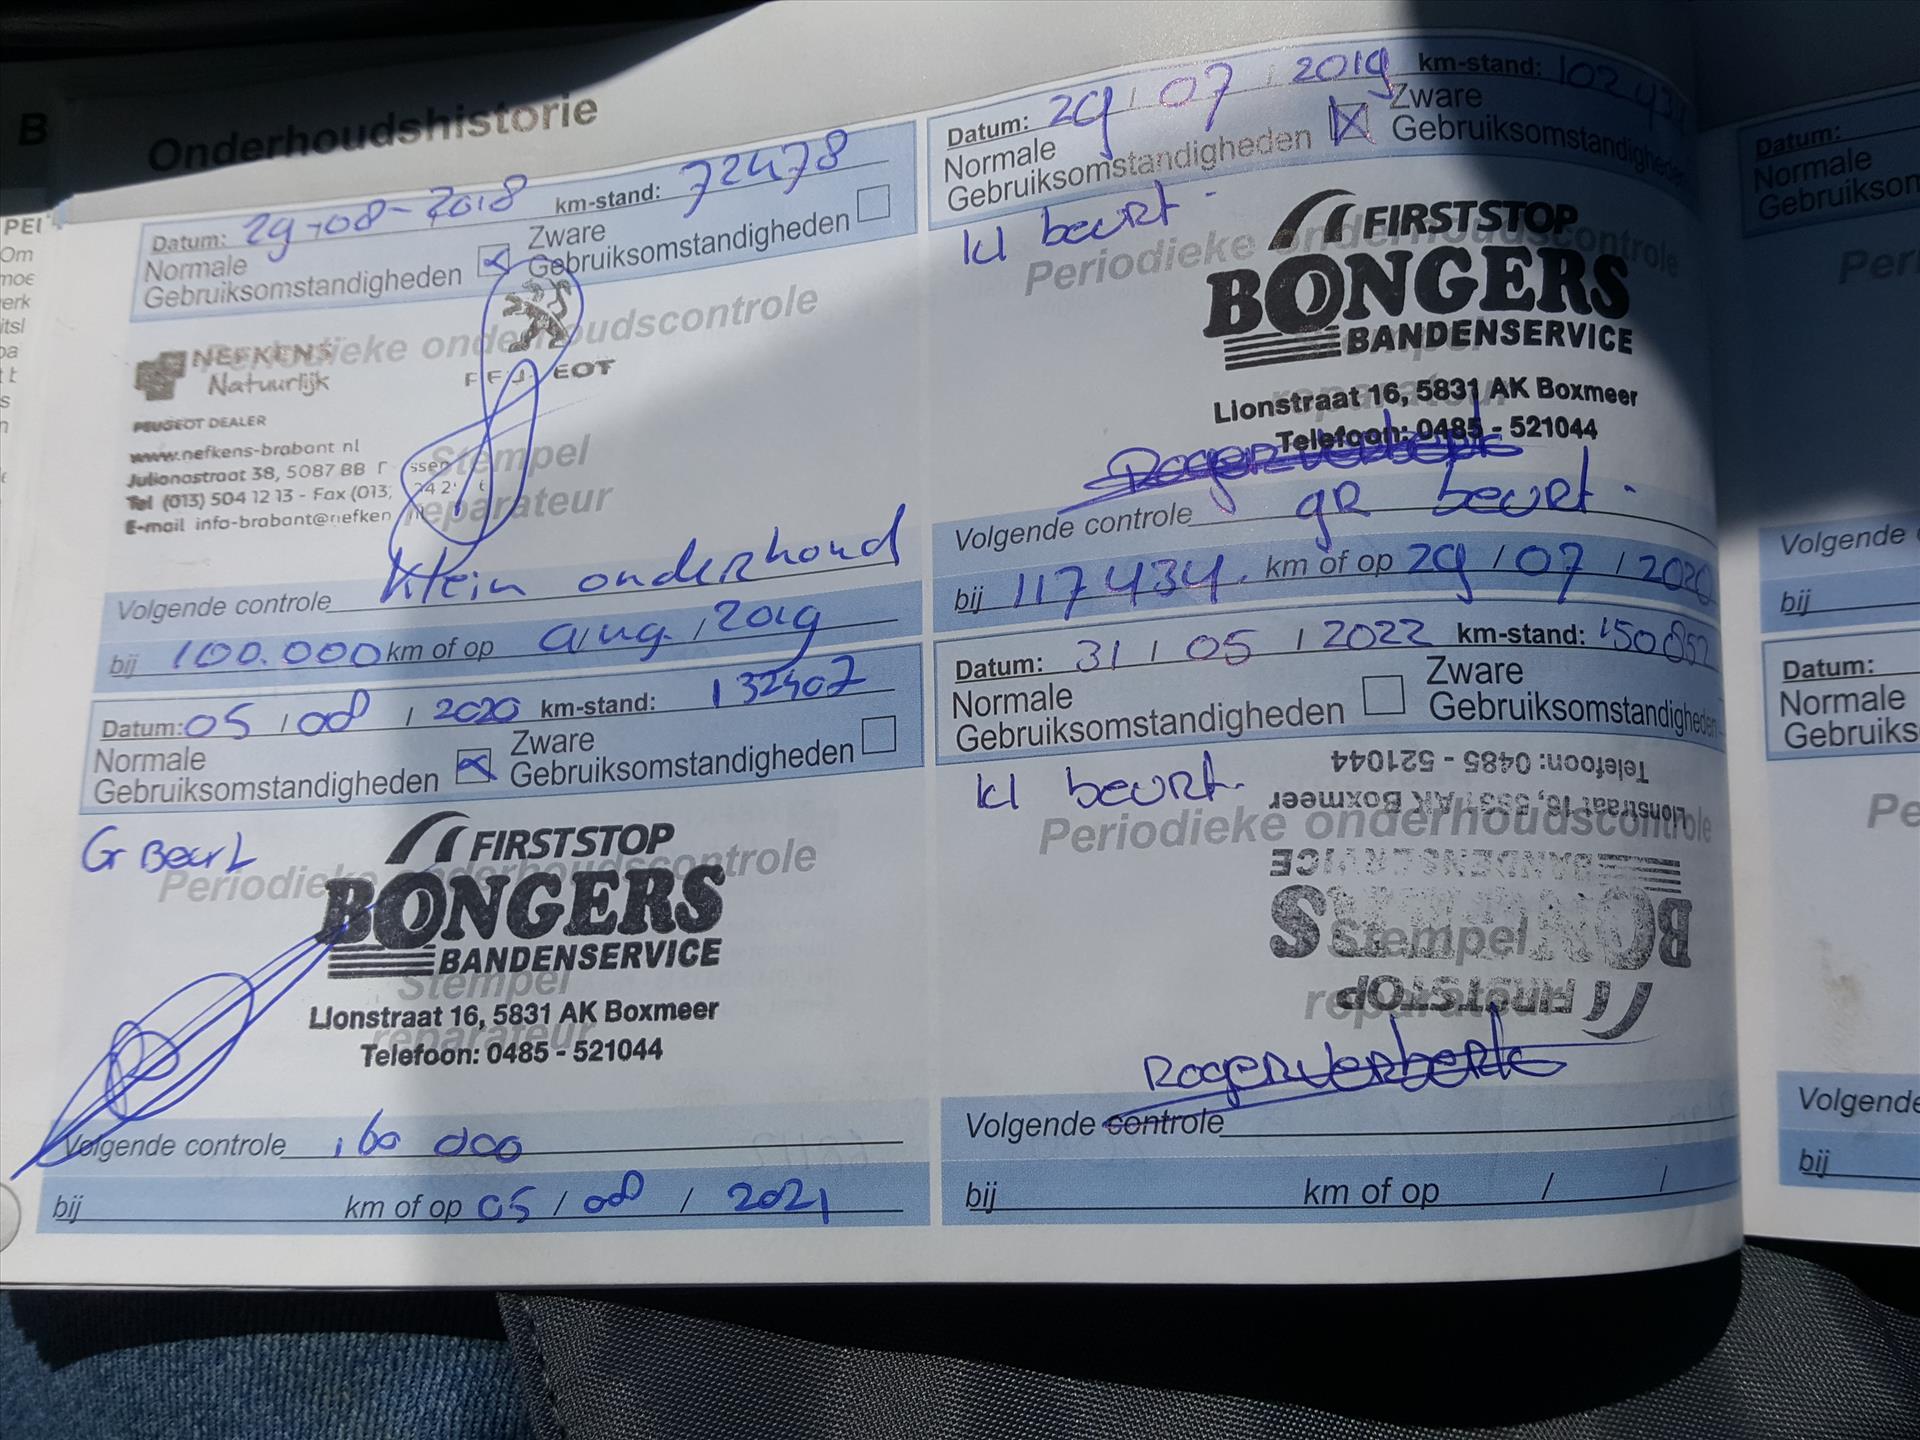 Onderhoudshistorie
Datum: 29-08-2018 km-stand: 72478
Normale
Gebruiksomstandigheden
Zware
Gebruiksomstandigheden
Periodieke onderhoudscontrole
NEFKENS
Natuurlijk
PEUGEOT
PEUGEOT DEALER
www.nefkens-brabant nl
Julianastraat 38, 5087 BB
Tel (013) 504 12 13 - Fax (013)
E-mail info-brabant@nefken
Stempel
reparateur
Volgende controle Klein onderhoud
bij 100.000 km of op aug. / 2019
Datum: 05 / 08 / 2020 km-stand: 132407
Normale
Gebruiksomstandigheden
Zware
Gebruiksomstandigheden
Gr Beurt
Periodieke onderhoudscontrole
FIRSTSTOP
BONGERS
BANDENSERVICE
Stempel
Lionstraat 16, 5831 AK Boxmeer
reparateur
Telefoon: 0485 - 521044
Volgende controle 160 000
bij km of op 05 / 08 / 2021
Datum: 29 / 07 / 2019 km-stand: 102434
Normale
Gebruiksomstandigheden
Zware
Gebruiksomstandigheden
kl beurt -
Periodieke onderhoudscontrole
FIRSTSTOP
BONGERS
BANDENSERVICE
Stempel
reparateur
Lionstraat 16, 5831 AK Boxmeer
Telefoon: 0485 - 521044
Roger Verberk
Volgende controle gr beurt -
bij 117434. km of op 29 / 07 / 2020
Datum: 31 / 05 / 2022 km-stand: 150852
Normale
Gebruiksomstandigheden
Zware
Gebruiksomstandigheden
kl beurt.
Telefoon: 0485 - 521044
Lionstraat 16, 5831 AK Boxmeer
Periodieke onderhoudscontrole
BANDENSERVICE
BONGERS
Stempel
FIRSTSTOP
reparateur
Roger Verberk
Volgende controle
bij km of op / /
Datum:
Normale
Gebruiksom
Per
Volgende
bij
Datum:
Normale
Gebruiks
Pe
Volgende
bij